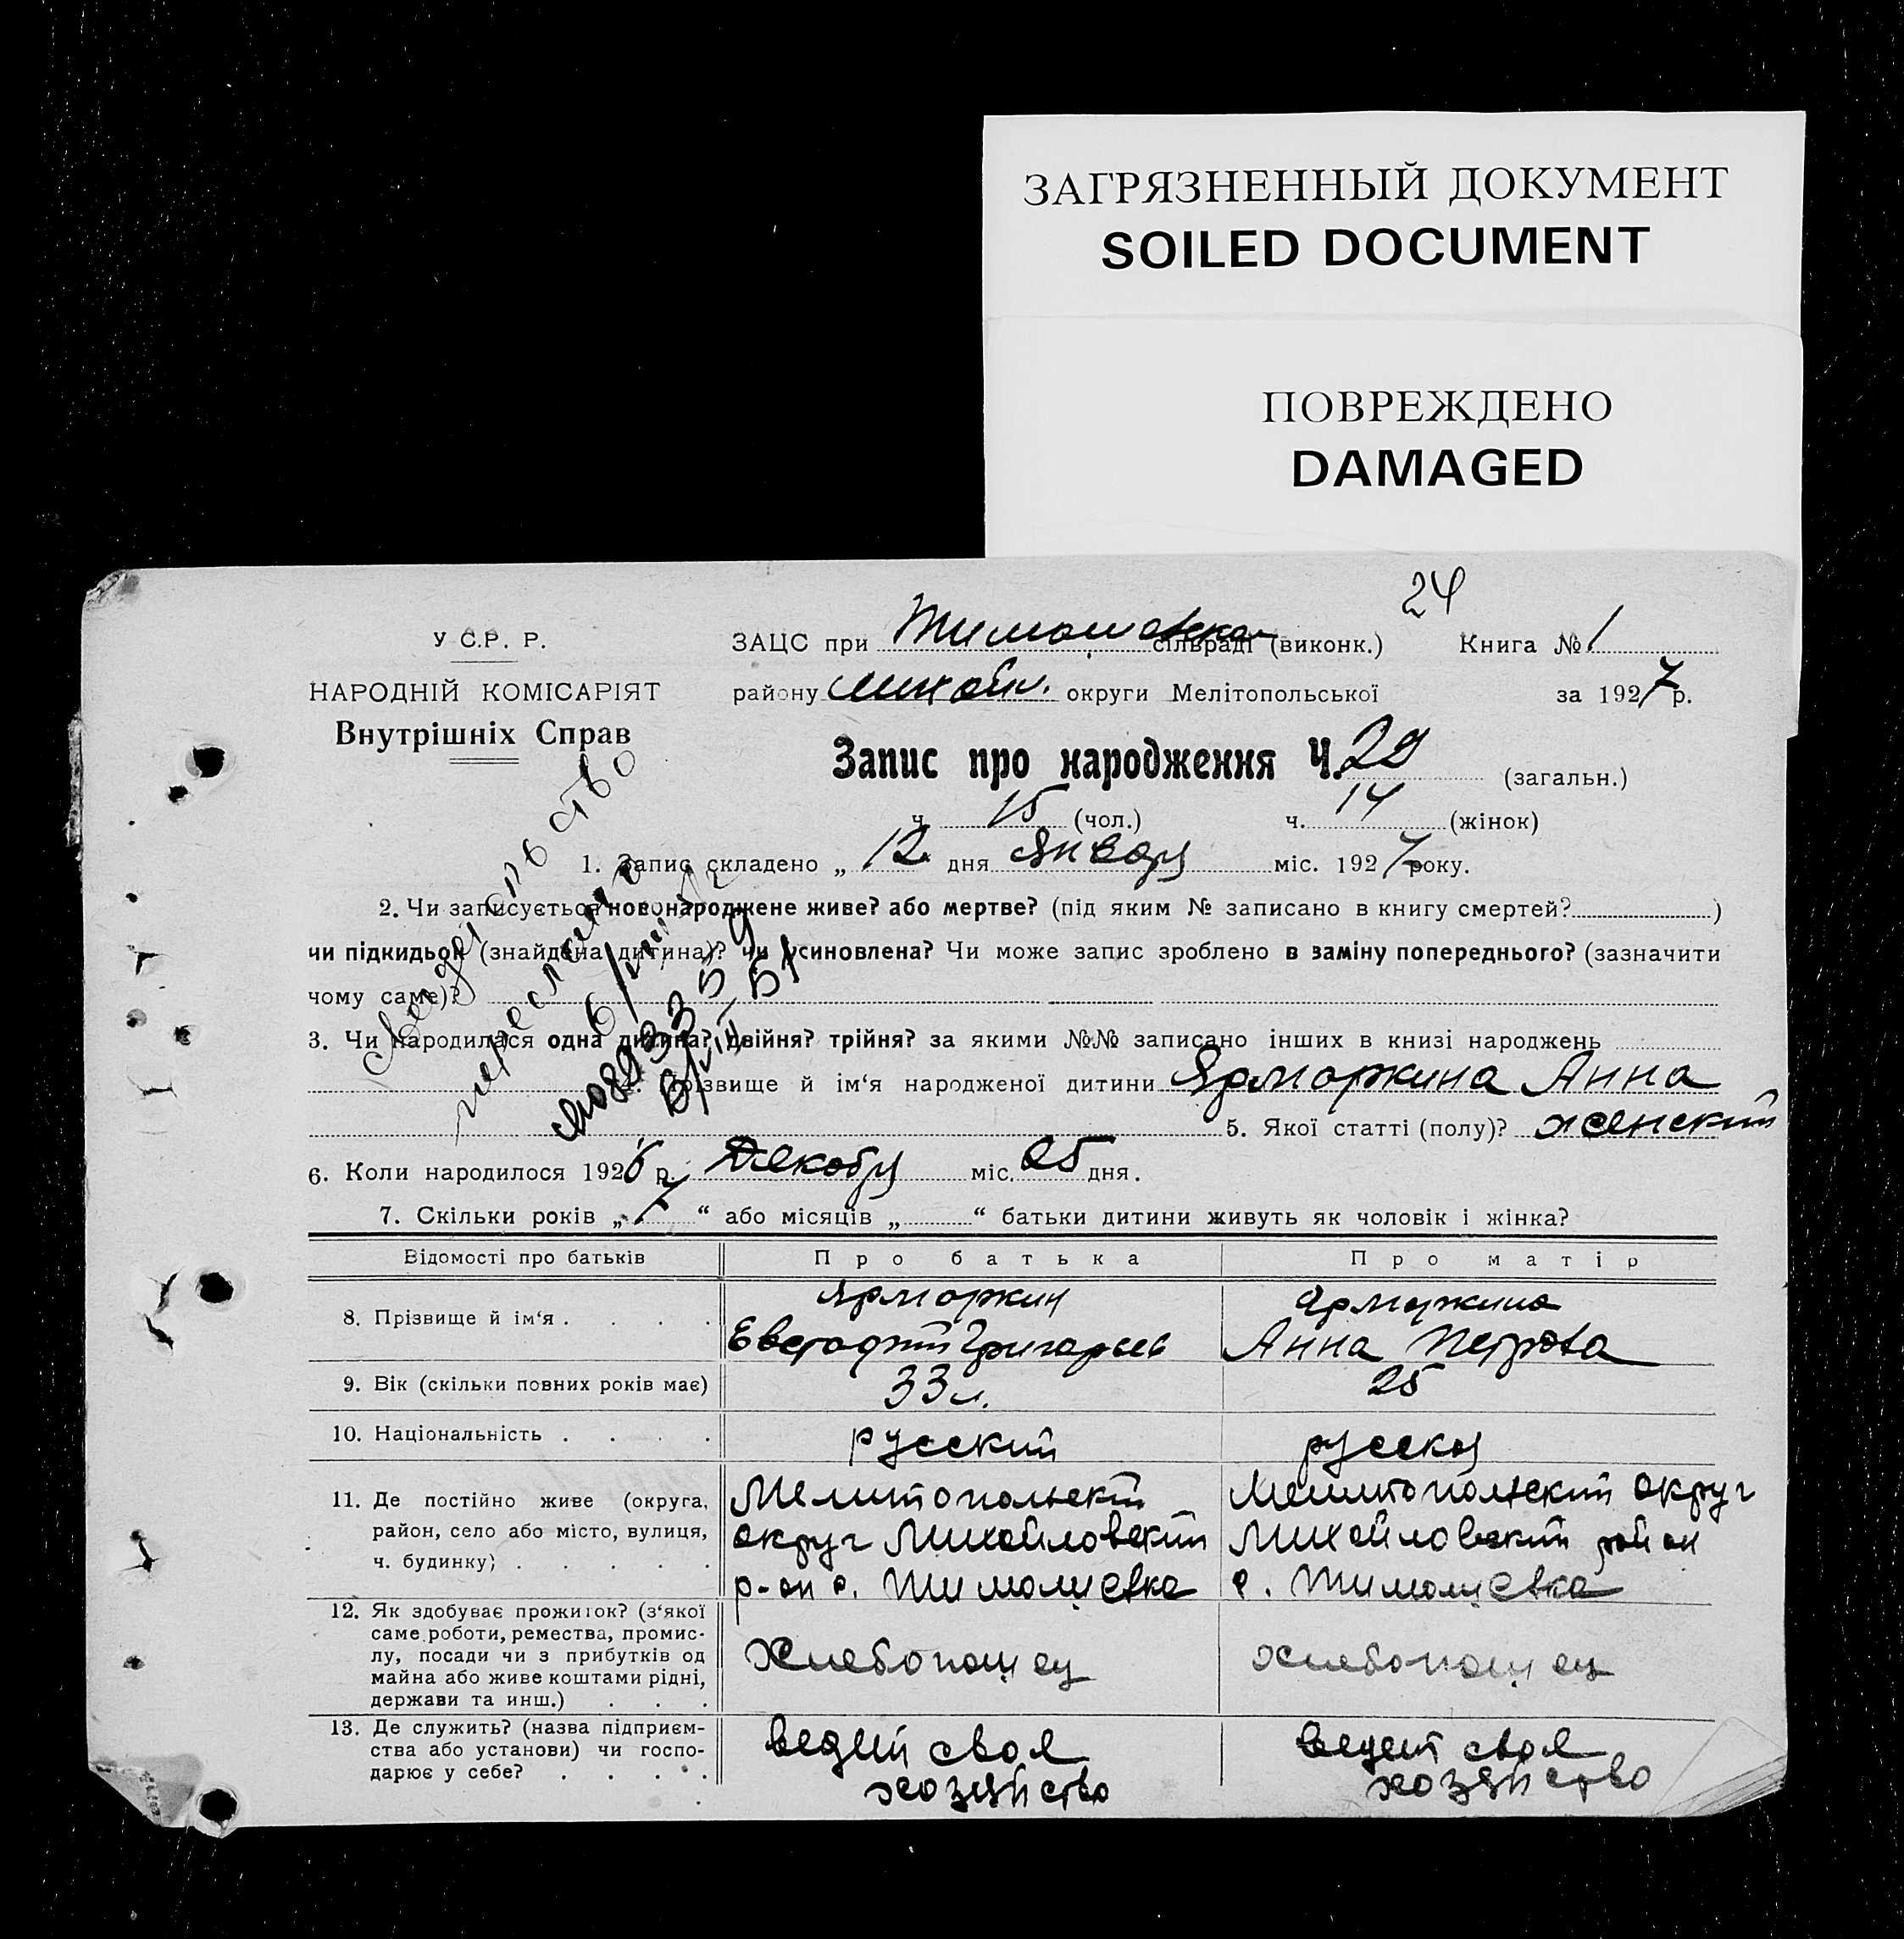 ЗАГРЯЗНЕННЫЙ ДОКУМЕНТ
SOILED DOCUMENT
ПОВРЕЖДЕНО
DAMAGED
24
У С.Р. Р.
НАРОДНІЙ КОМІСАРІЯТ
Внутрішніх Справ
ЗАЦС при Тимошовском сільраді (виконк.) Книга № 1
району Михайл. округи Мелітопольської за 1927 р.
Запис про народження Ч. 29 (загальн.)
ч. 15 (чол.) ч. 14 (жінок)
1. Запис складено „ 12 дня Января міс. 1927 року.
2. Чи записується новонароджене живе? або мертве? (під яким № записано в книгу смертей? )
чи підкидьок (знайдена дитина)? чи усиновлена? Чи може запис зроблено в заміну попереднього? (зазначити
чому саме)?
3. Чи народилася одна дитина? двійня? трійня? за якими №№ записано інших в книзі народжень
4. Прізвище й ім‘я народженої дитини Ярморкина Анна
5. Якої статті (полу)? женский
6. Коли народилося 1926 р. Декобря міс. 25 дня.
7. Скільки років „ 7 “ або місяців „ “ батьки дитини живуть як чоловік і жінка?
Свидетельство
переслано
Відомості про батьків Про батька Про матір
8. Прізвище й ім‘я . . . . Ярморкин Ярморкина
Евстафий Григорьев Анна Петрова
9. Вік (скільки повних років має) 33 л. 25
10. Національність . . . . русский русская
11. Де постійно живе (округа, Мелитопольский Мелитопольский округ
район, село або місто, вулиця, округ Михайловский Михайловский район
ч. будинку) . . . . . р-он с. Тимошевка с. Тимошевка
12. Як здобуває прожиток? (з‘якої
саме роботи, ремества, промис-
лу, посади чи з прибутків од Хлебопошец хлебопошец
майна або живе коштами рідні,
держави та инш.) . . .
13. Де служить? (назва підприєм- ведет своя ведет своя
ства або установи) чи госпо- хозяйство хозяйство
дарює у себе? . . . .